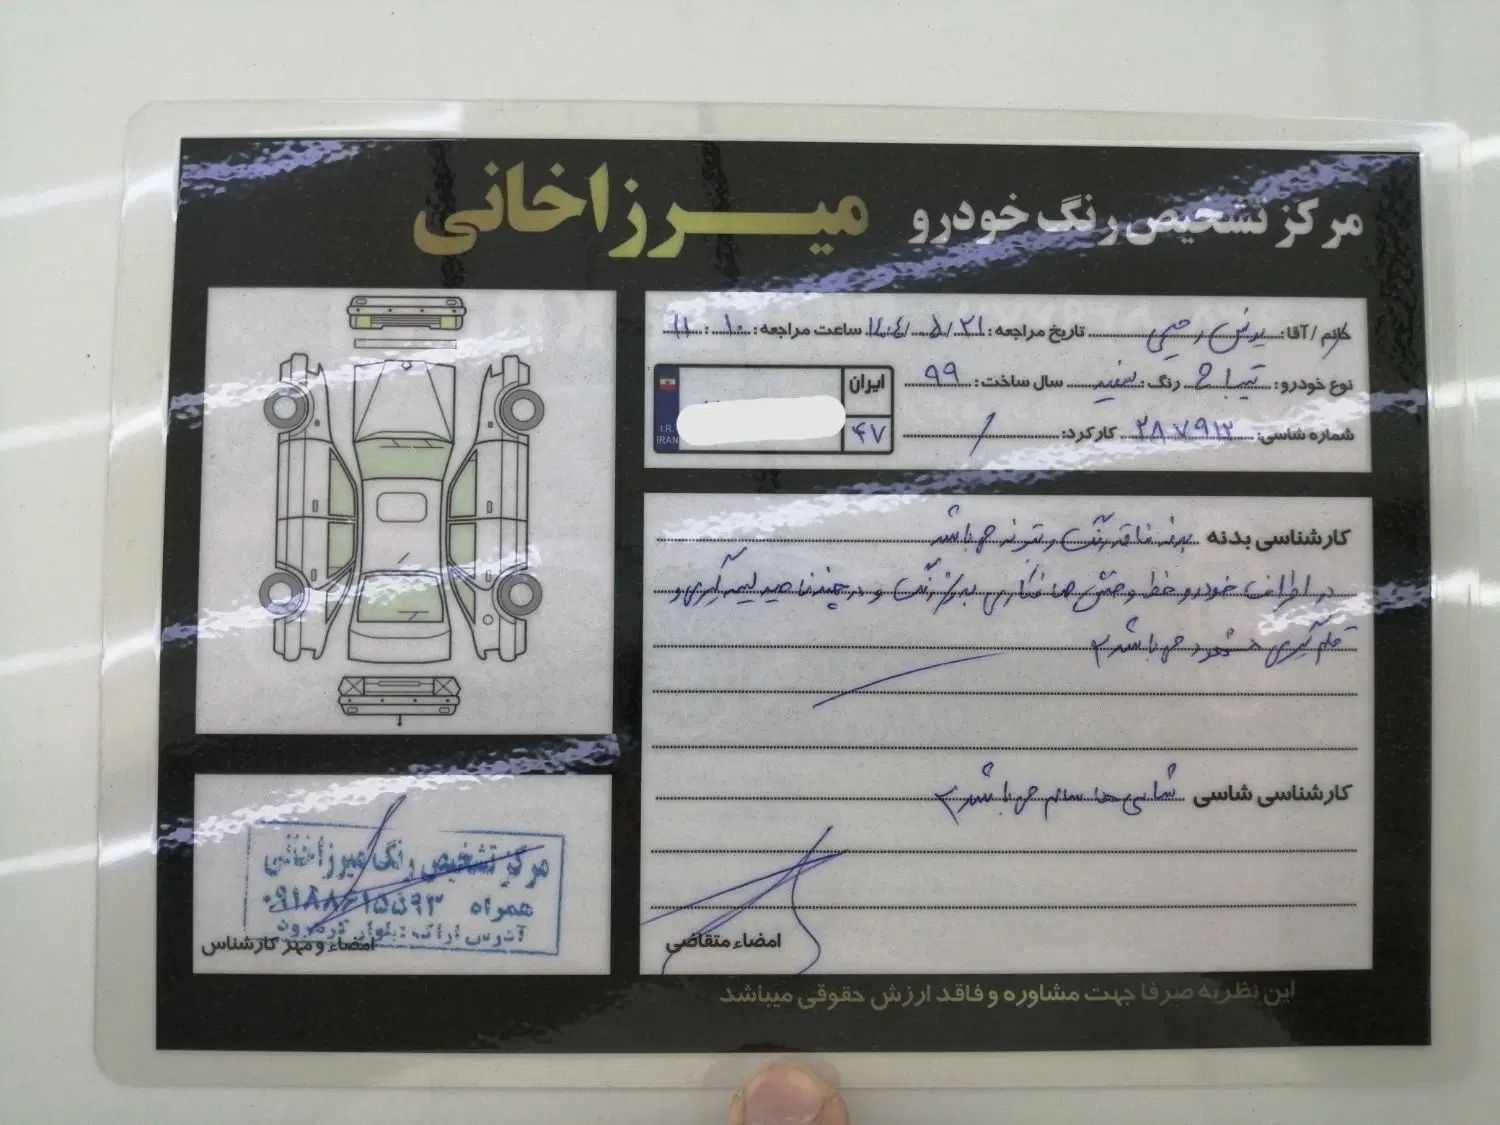 مرکز تشخیص رنگ خودرو میرزاخانی
خانم / آقا: یونس رحیمی تاریخ مراجعه: ۱۴۰۴/۵/۲۱ ساعت مراجعه: ۱۰ : ۱۱
نوع خودرو: تیبا ۲ رنگ: سفید سال ساخت: ۹۹
شماره شاسی: ۲۸۷۹۱۲ کارکرد: /
ایران
۴۷
I.R.
IRAN
کارشناسی بدنه بدنه فاقد رنگ و بتونه می باشد
در اطراف خودرو خط و خش صافکاری بدون رنگ و در چند ناحیه لیسه گیری و
قلم گیری مشهود می باشد
کارشناسی شاسی شاسی ها سالم می باشد
امضاء متقاضی
مرکز تشخیص رنگ میرزاخانی
همراه ۰۹۱۸۸۶۱۵۵۹۳
آدرس اراک : بلوار
امضاء و مهر کارشناس
این نظریه صرفا جهت مشاوره و فاقد ارزش حقوقی میباشد